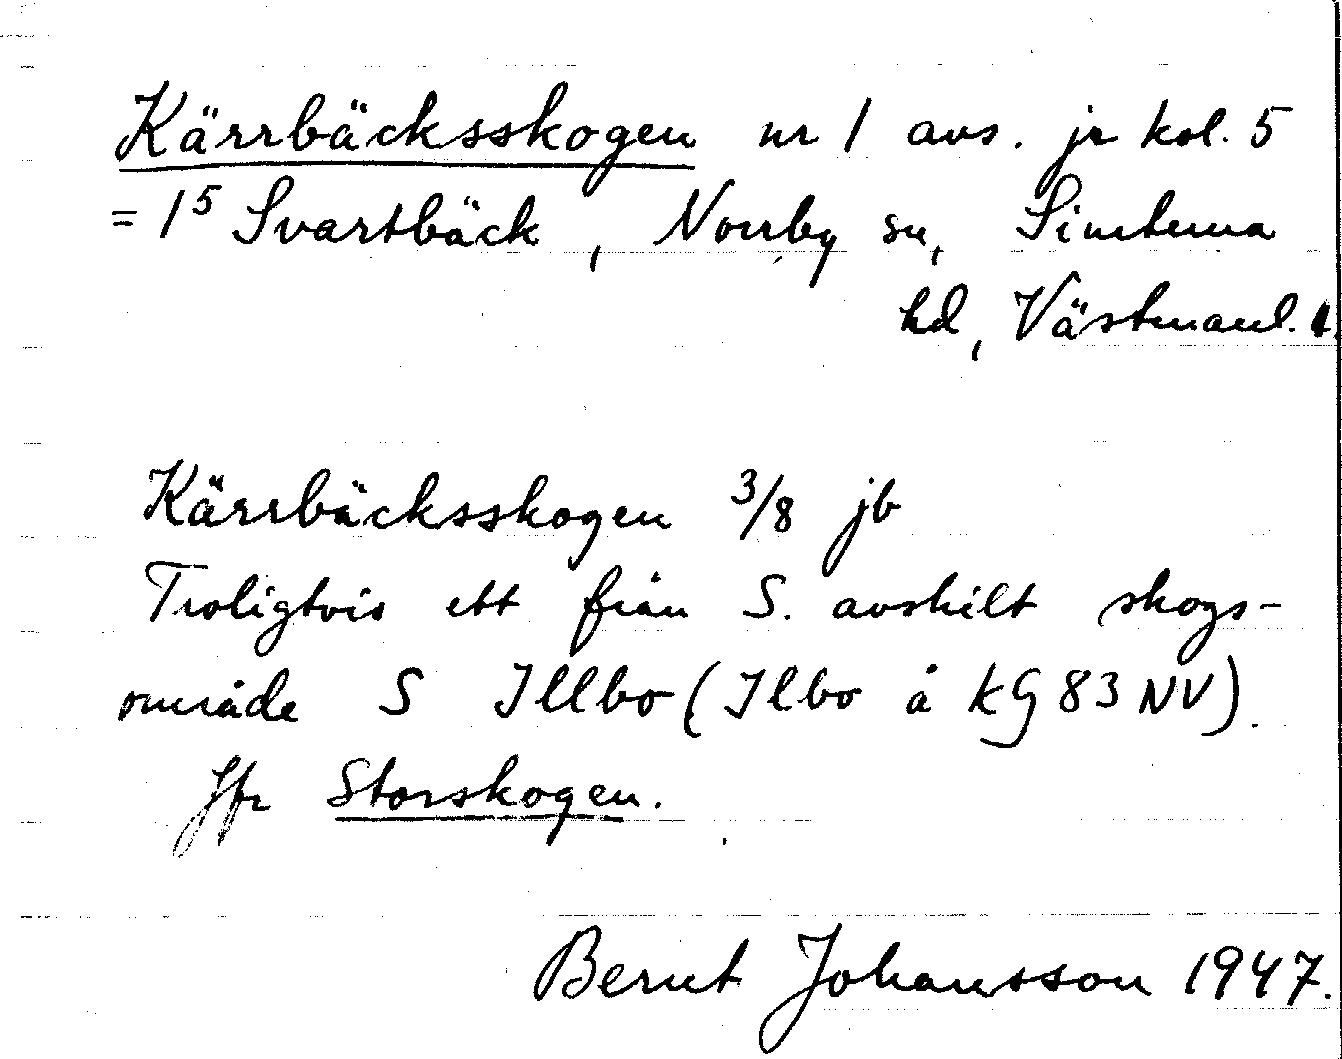 Kärrbäcksskogen nr 1 avs. jr kol. 5
= 1⁵ Svartbäck, Norrby sn, Simtuna
hd, Västmanl. l.
Kärrbäcksskogen 3/8 jb
Troligtvis ett från S. avskilt skogs-
område S Illbo (Ilbo å kG 83 NV).
Jfr Storskogen.
Bernt Johansson 1947.